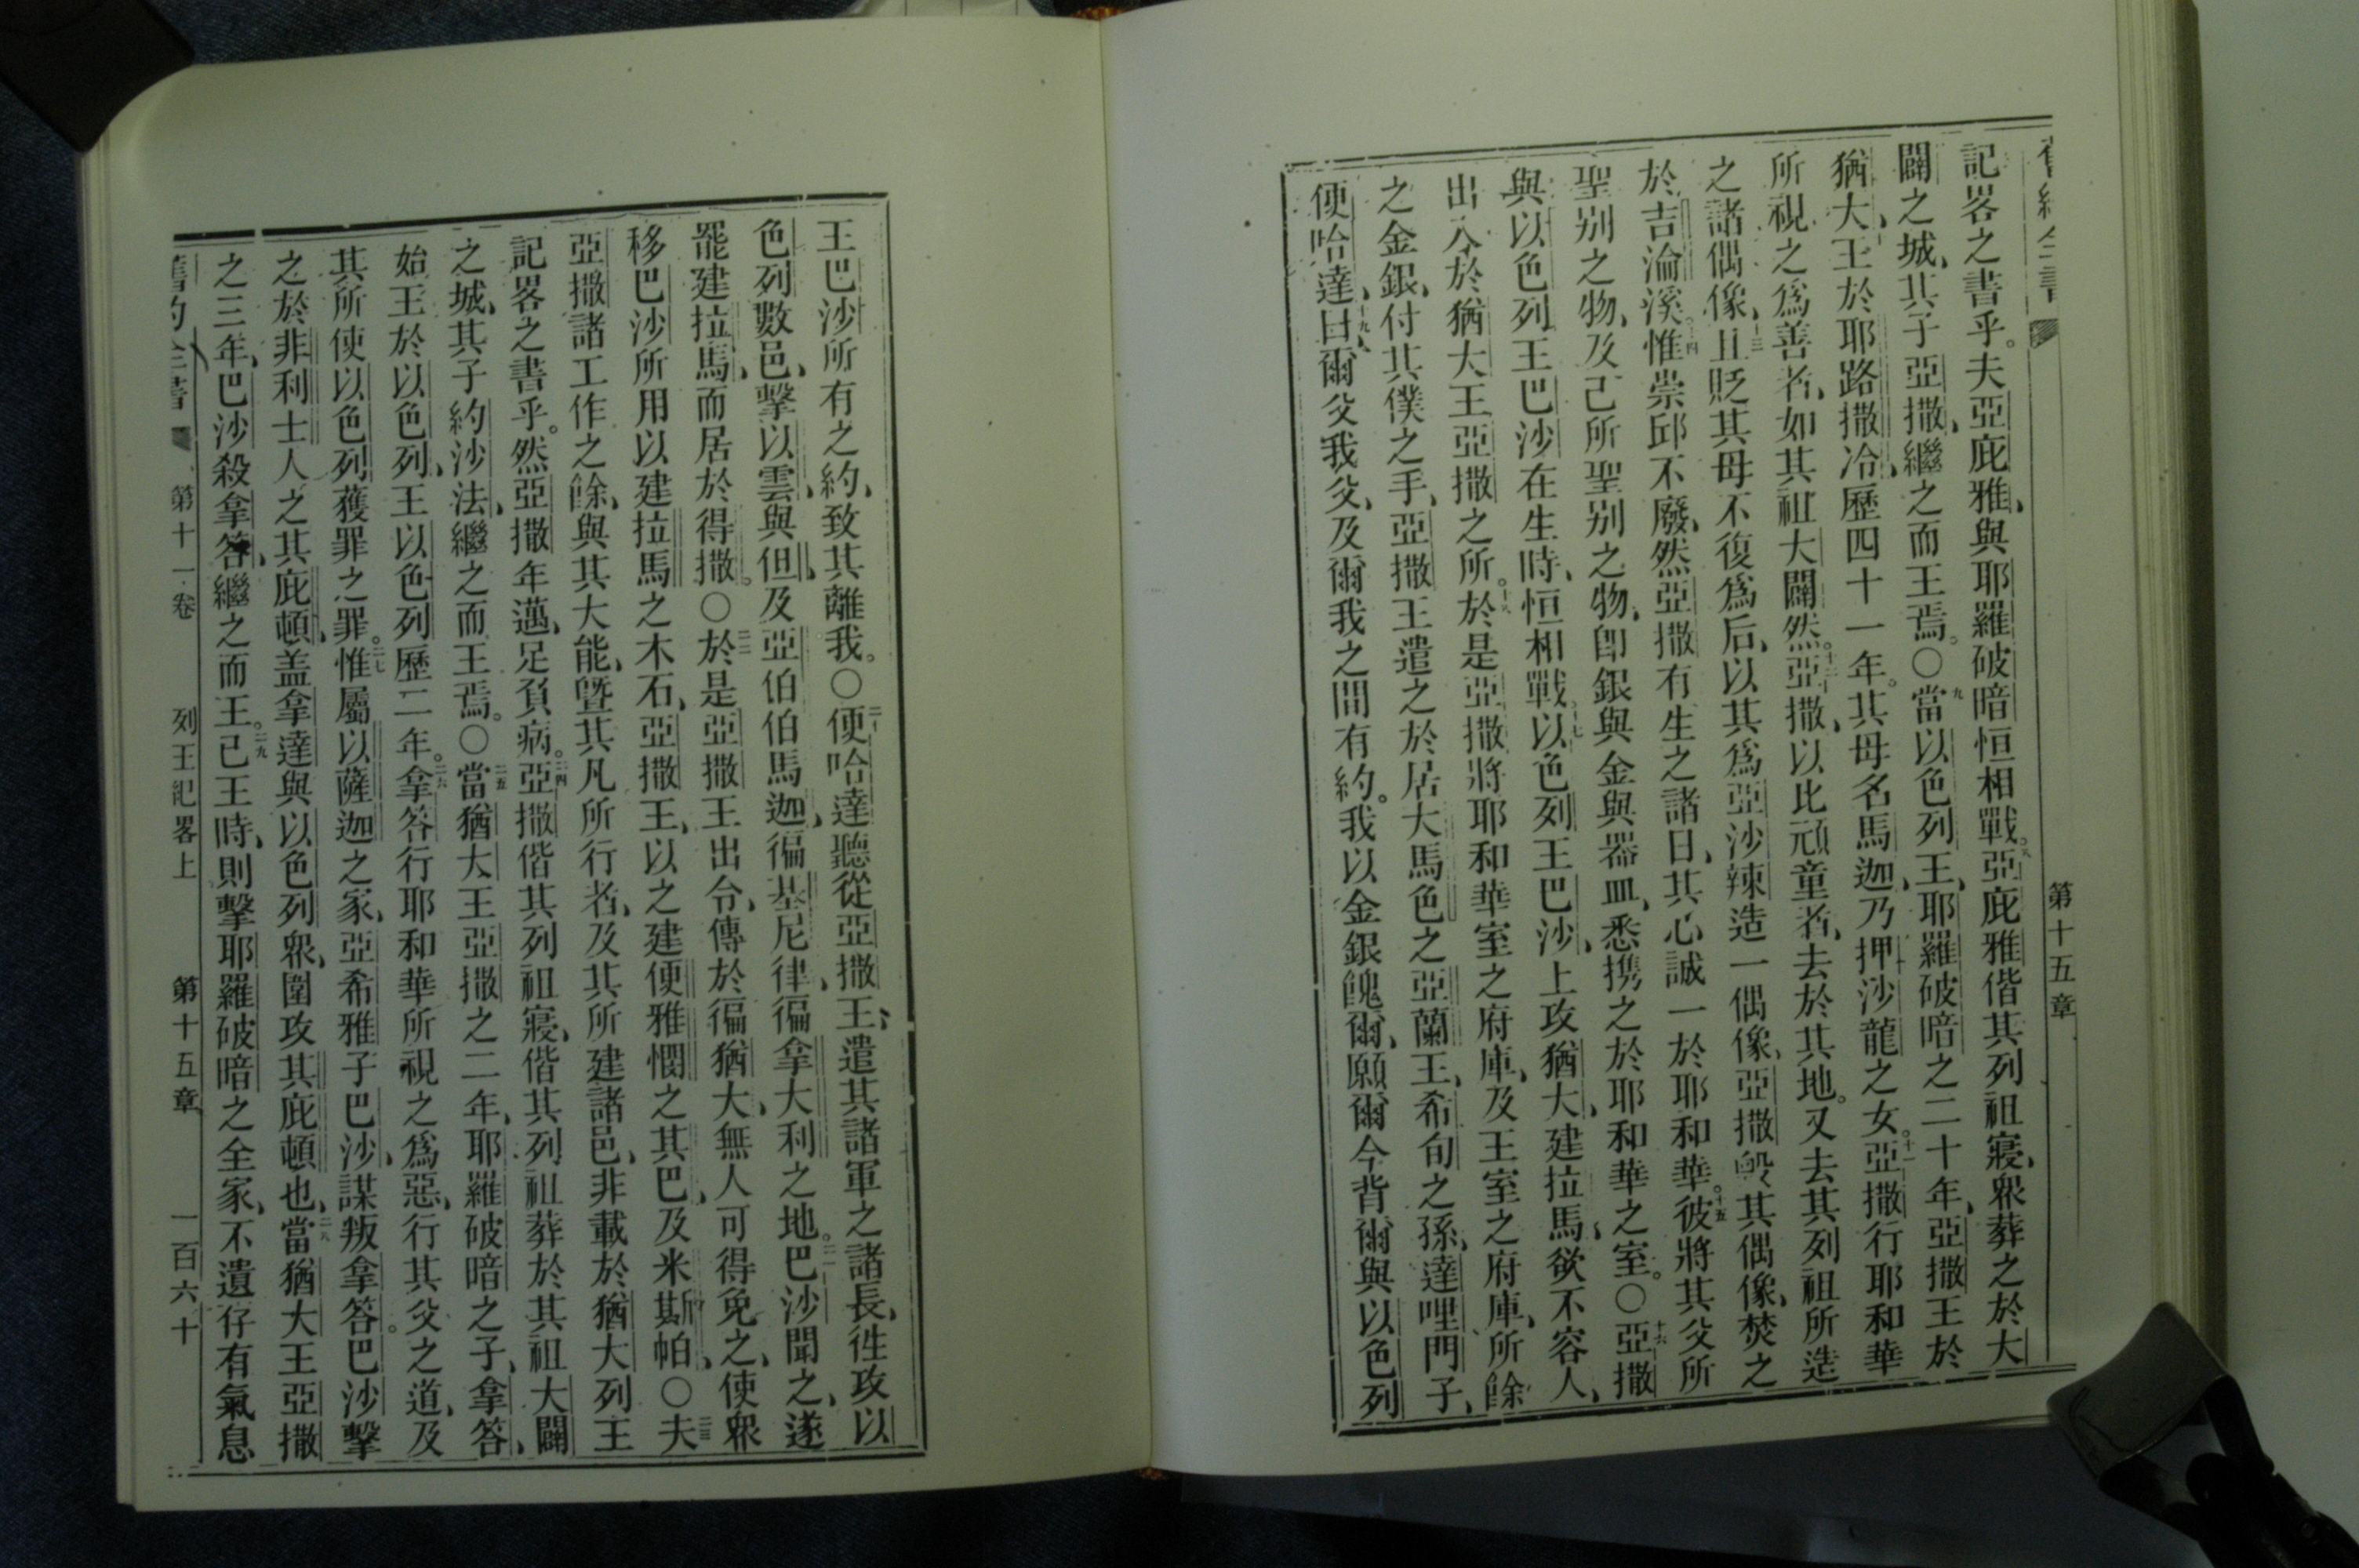 第十五章
記畧之書乎。夫亞庇雅、與耶羅破暗恒相戰。八亞庇雅偕其列祖寢、眾葬之於大
闢之城、其子亞撒、繼之而王焉。○九當以色列王、耶羅破暗之二十年、亞撒王於
猶大、王於耶路撒冷、歷四十一年。其母名馬迦、乃押沙龍之女。十一亞撒行耶和華
所視之爲善者、如其祖大闢然。十二亞撒、以比頑童者、去於其地。又去其列祖所造
之諸偶像、十三且貶其母不復爲后、以其爲亞沙辣造一偶像、亞撒毀其偶像、焚之
於吉淪溪。十四惟崇邱不廢、然亞撒有生之諸日、其心誠一於耶和華。十五彼將其父所
聖別之物、及己所聖別之物、卽銀與金與器皿、悉携之於耶和華之室。○十六亞撒
與以色列王巴沙在生時、恒相戰。十七以色列王巴沙、上攻猶大、建拉馬、欲不容人、
出入於猶大王亞撒之所。十八於是亞撒將耶和華室之府庫、及王室之府庫、所餘
之金銀、付其僕之手、亞撒王遣之於居大馬色之亞蘭王、希旬之孫、達哩門子、
便哈達、十九曰、爾父我父、及爾我之間有約。我以金銀餽爾、願爾今背爾與以色列
王巴沙所有之約、致其離我。○二十便哈達聽從亞撒王、遣其諸軍之諸長、徃攻以
色列數邑、擊以雲、與但、及亞伯伯馬迦、徧基尼律、徧拿大利之地。二一巴沙聞之、遂
罷建拉馬、而居於得撒。○二二於是亞撒王出令、傳於徧猶大、無人可得免之、使眾
移巴沙所用以建拉馬之木石、亞撒王、以之建便雅憫之其巴、及米斯帕、○二三夫
亞撒諸工作之餘、與其大能、曁其凡所行者、及其所建諸邑、非載於猶大列王
記畧之書乎。然亞撒年邁、足負病。二四亞撒偕其列祖寢、偕其列祖葬於其祖大闢
之城、其子約沙法、繼之而王焉。○二五當猶大王亞撒之二年、耶羅破暗之子、拿答、
始王於以色列、王以色列歷二年。二六拿答行耶和華所視之爲惡、行其父之道、及
其所使以色列獲罪之罪。二七惟屬以薩迦之家、亞希雅子巴沙、謀叛拿答。巴沙擊
之於非利士人之其庇頓、盖拿達與以色列眾、圍攻其庇頓也、二八當猶大王亞撒
之三年、巴沙殺拿答、繼之而王。二九已王時、則擊耶羅破暗之全家、不遺存有氣息
第十一卷 列王紀畧上 第十五章 一百六十